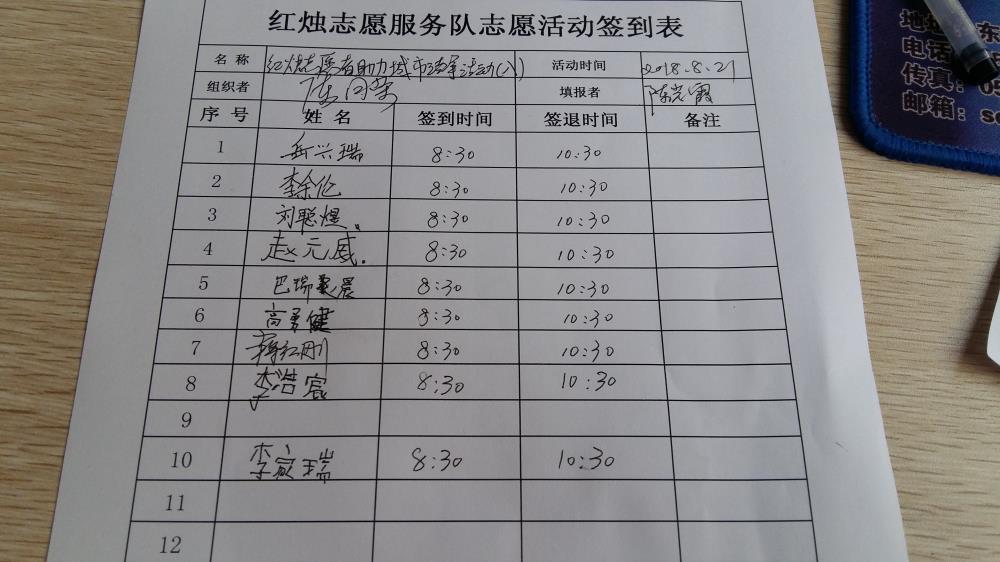 红烛志愿服务队志愿活动签到表
名称 红烛志愿者助力城市 活动(八) 活动时间 2018.8.21
组织者 陈 填报者 陈 霞
序号 姓名 签到时间 签退时间 备注
1 岳兴瑞 8:30 10:30
2 李余伦 8:30 10:30
3 刘聪煜、 8:30 10:30
4 赵元威. 8:30 10:30
5 巴瑞 晨 8:30 10:30
6 高 健 8:30 10:30
7 红刚 8:30 10:30
8 李浩宸 8:30 10:30
9
10 李 瑞 8:30 10:30
11
12
地址 东
电话
传真:05
邮箱:se